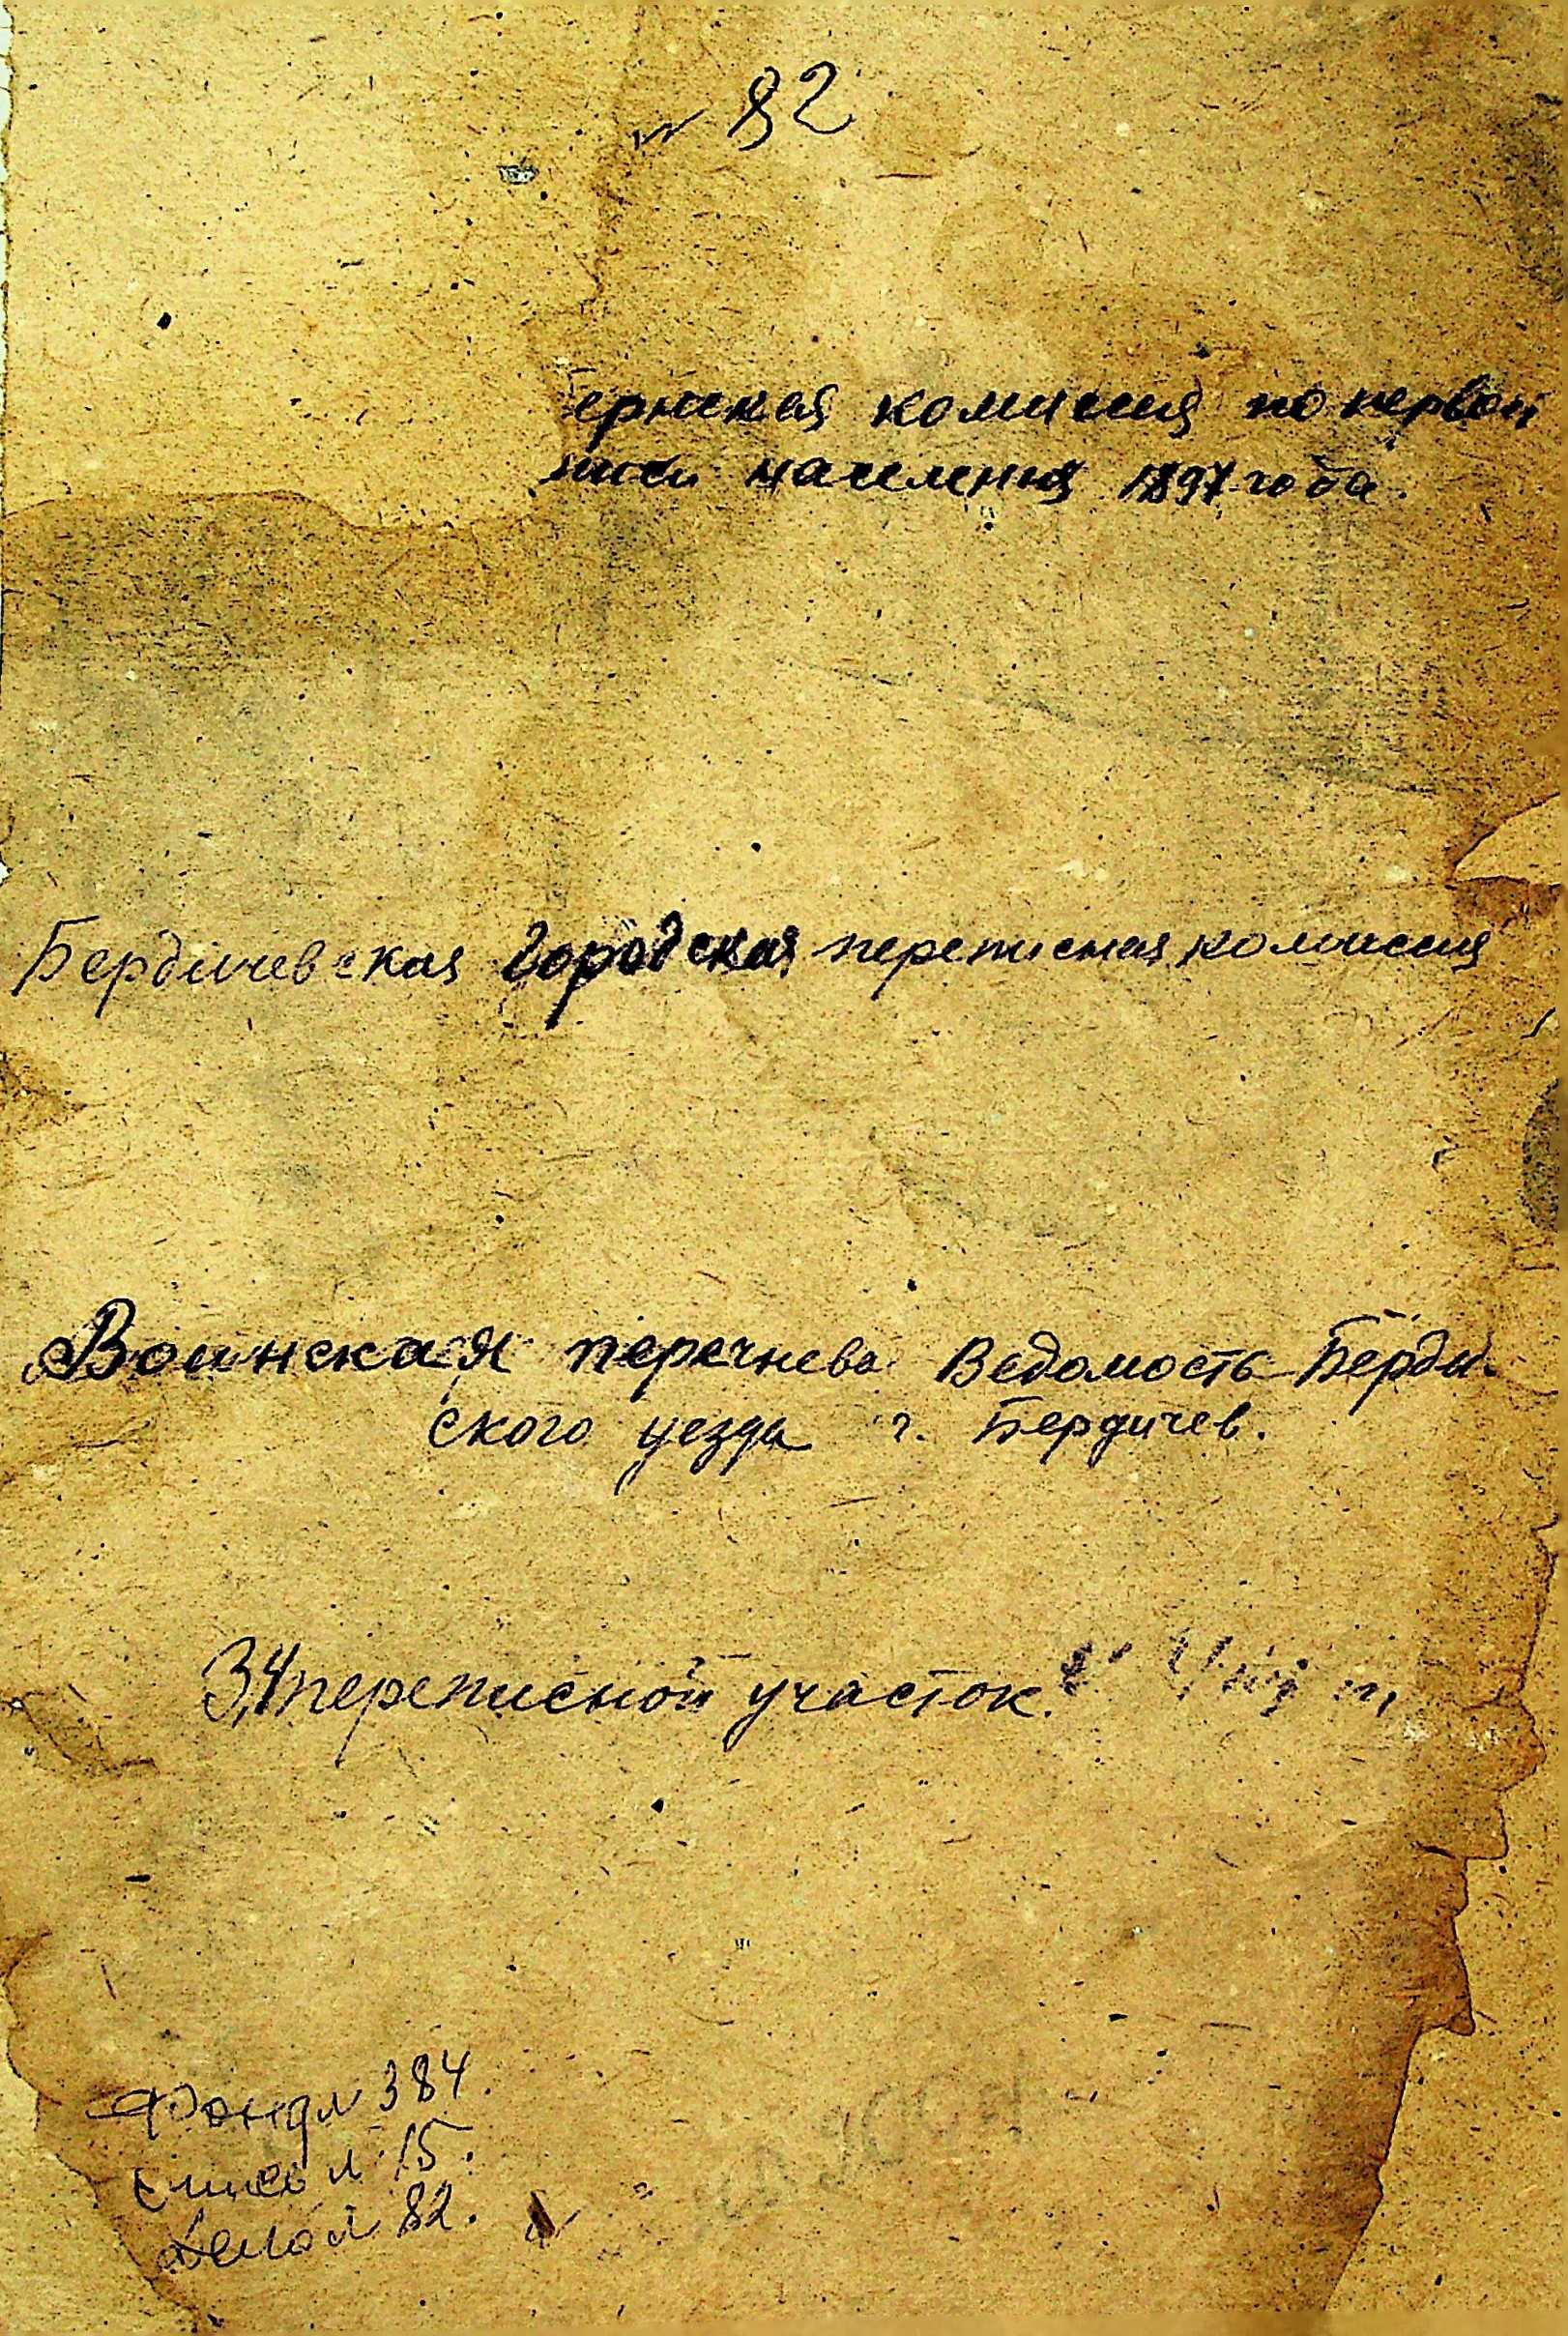 № 82
ернская комиссия по первой
писи населения 1897 года.
Бердичевская городская переписная комиссия
Воинская перечнева ведомость Берди-
ского уезда г. Бердичев.
3,4 переписной участок.
Фонд № 384.
Опись № 15.
Дело № 82.